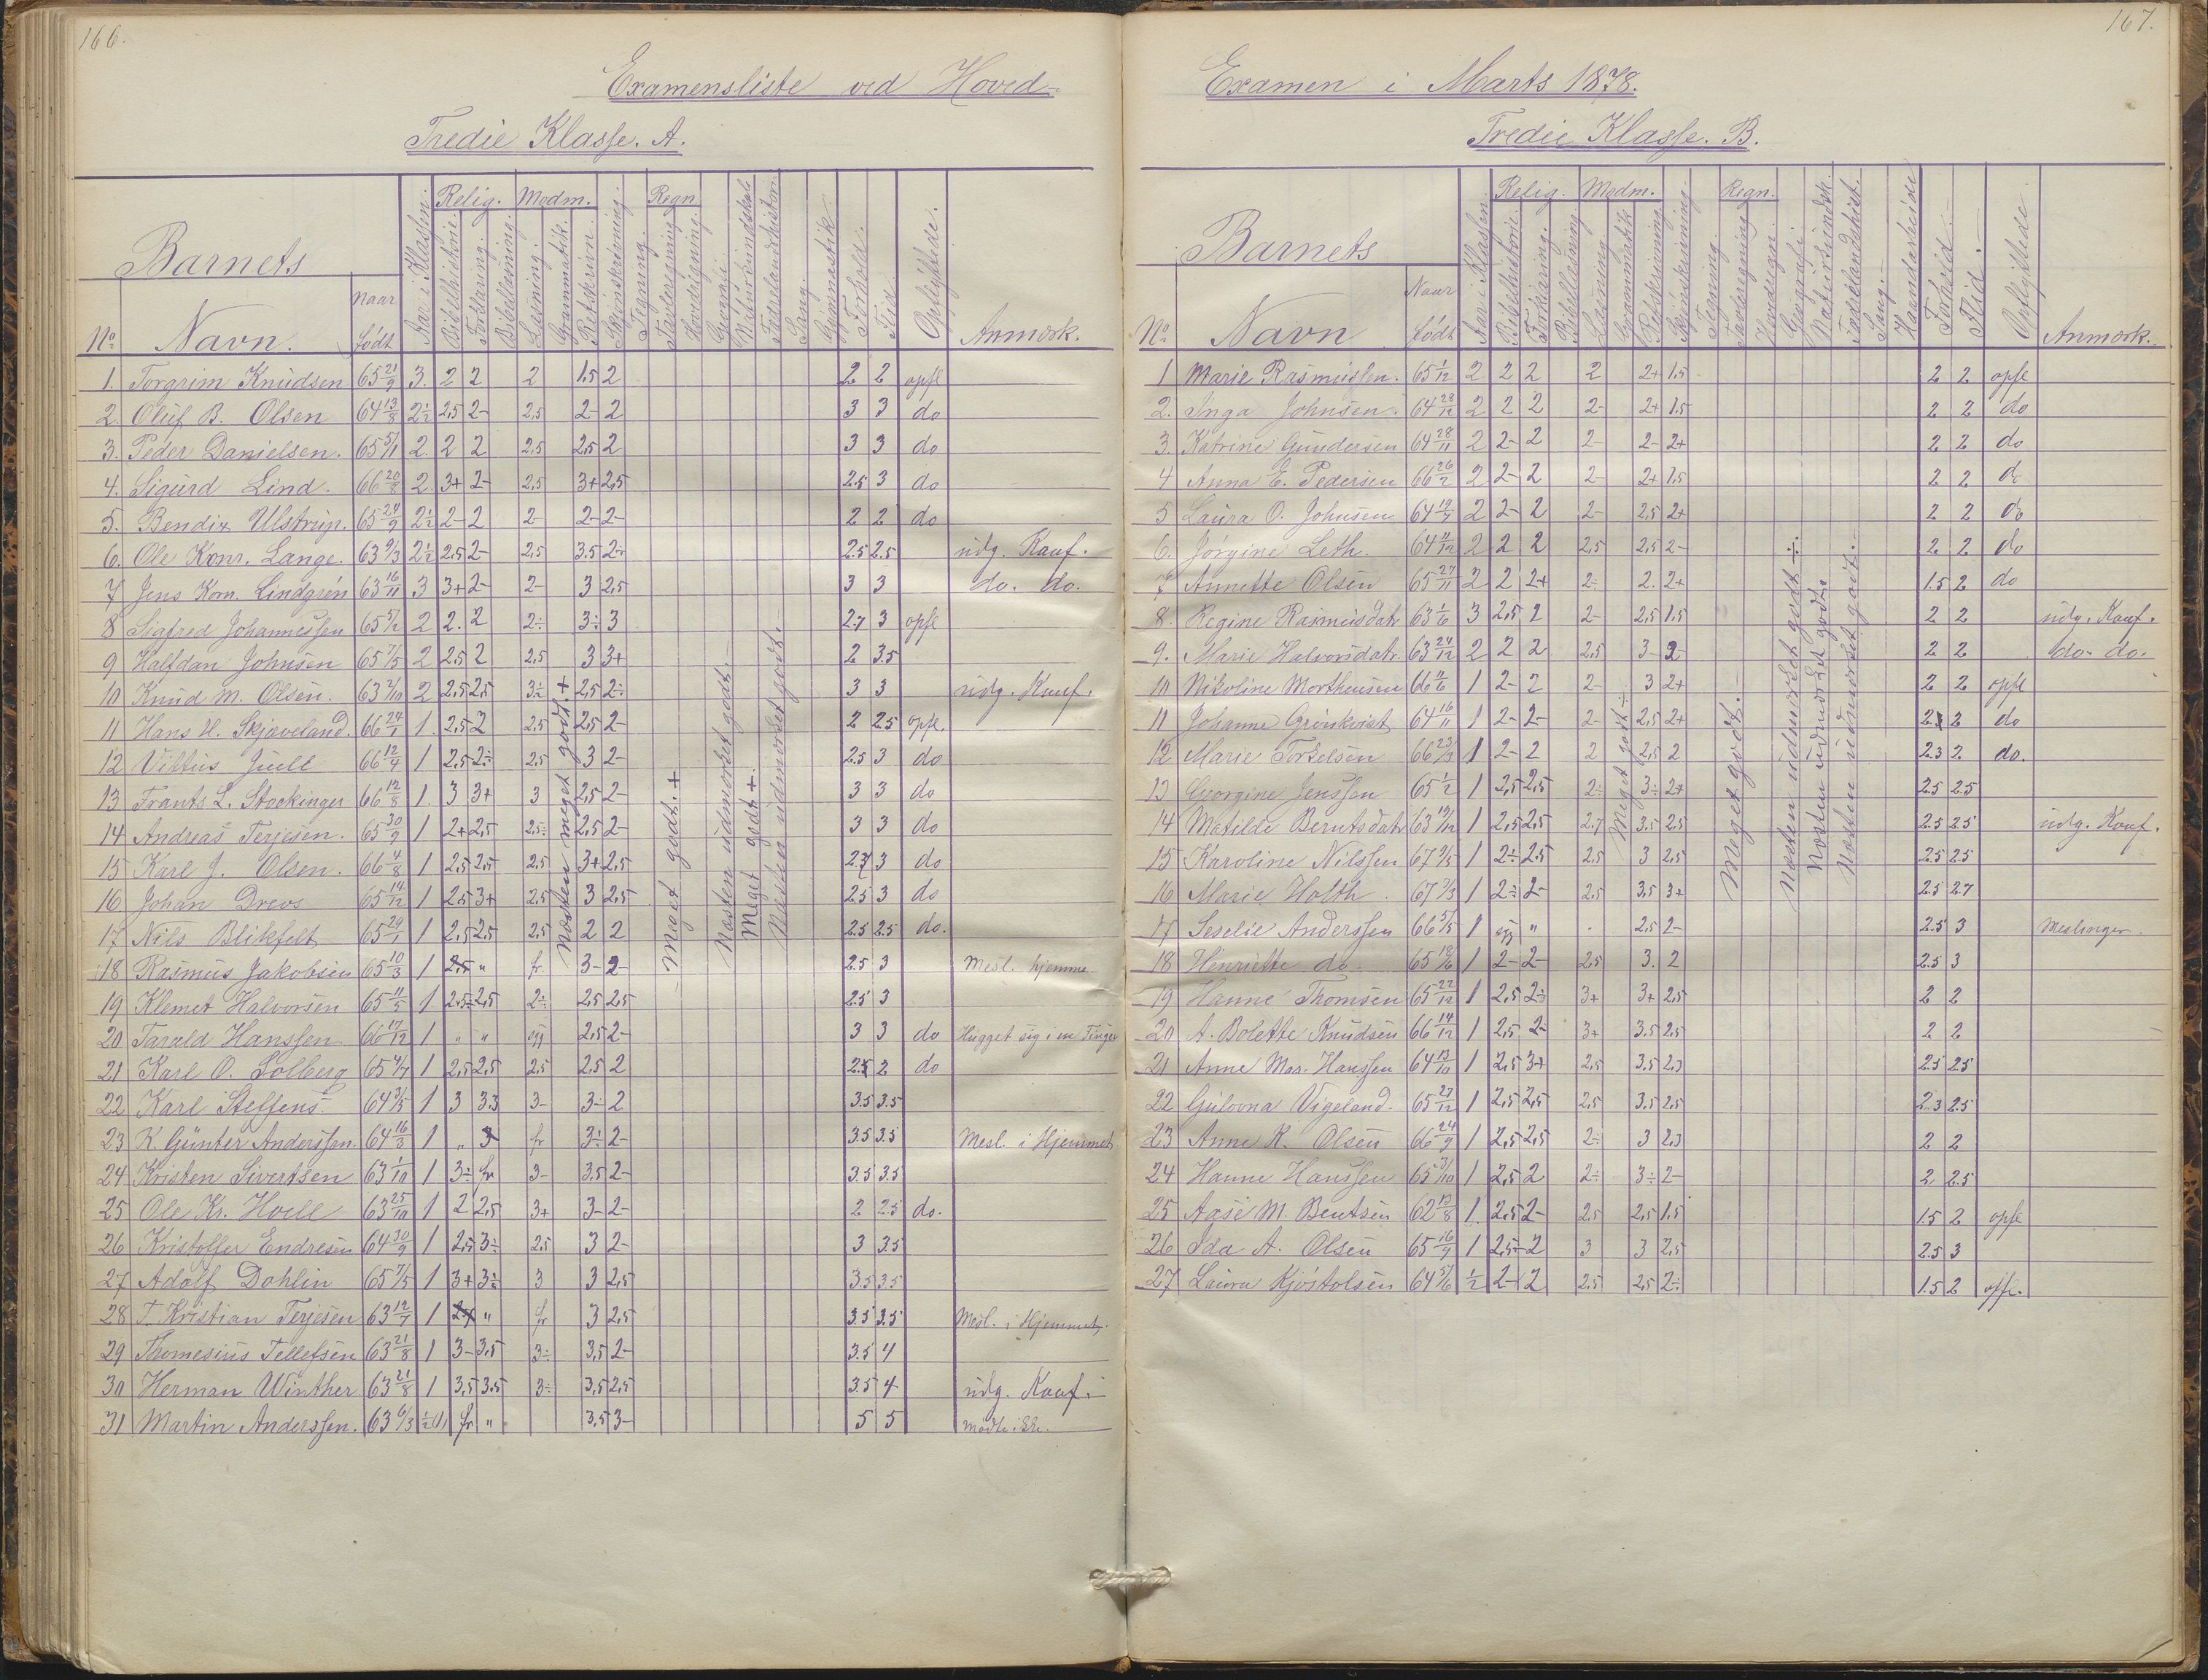 166.
Examensliste ved Hoved-
Tredie Klasse. A.
Barnets
No Navn. Naar født Aar i Klassen. Relig. Bibelhistorie. Forklaring. Bibellæsning. Modm. Læsning. Grammatik. Retskrivn. Skjønskrivning. Tegning. Regn. Tavleregning. Hovedregning. Geografi. Naturkundskab. Fædrelandshistori. Sang. Gymnastik. Forhold. Flid. Opflyttede. Anmærk.
1. Torgrim Knudsen 65 21/9 3. 2 2 2 1.5 2 2 2 opfl
2. Oluf B. Olsen 64 13/8 2½ 2,5 2- 2,5 2- 2 3 3 do
3. Peder Danielsen. 65 5/11 2. 2 2 2,5 2,5 2 3 3 do
4. Sigurd Lind. 66 20/8 2. 3+ 2- 2,5 3+ 2,5 2.5 3 do
5. Bendix Ulstrup. 65 24/9 2½ 2- 2 2- 2- 2- 2 2 do
6. Ole Konr. Lange. 63 9/3 2½ 2.5 2- 2,5 3.5 2÷ 2.5 2.5 udg. Konf.
7 Jens Korn. Lindgrén 63 16/11 3 3+ 2- 2- 3 2,5 3 3 do. do.
8 Sigfred Johannessen 65 5/12 2 2. 2 2÷ 3÷ 3 2.7 3 opfl
9 Halfdan Johnsen 65 7/5 2 2,5 2 2,5 3 3+ 2 3.5
10 Knud M. Olsen. 63 2/10 2 2,5 2,5 3÷ 2,5 2÷ 3 3 udg. Konf.
11 Hans H. Skjæveland. 66 24/1 1. 2,5 2 2,5 2,5 2- 2 2.5 opfl.
12 Vittus Juell 66 12/4 1 2,5 2÷ 2,5 3 2- 2.5 3 do
13 Frants L. Stockinger 66 12/8 1. 3 3+ 3 2,5 2- 3 3 do
14 Andreas Terjesen. 65 30/9 1 2+ 2,5 2,5÷ 2,5 2- 3 3 do
15 Karl J. Olsen. 66 4/8 1 2,5 2,5 2,5 3+ 2,5 2.7 3 do
16 Johan Drevs 65 14/12 1 2.5 3+ 2,5 3 2,5 2.5 3 do
17 Nils Blikfelt 65 29/1 1 2,5 2,5 2,5 2 2 2.5 2.5 do.
18 Rasmus Jakobsen 65 10/3 1 2,5 " fr. 3- 2- 2.5 3 Mesl. hjemme
19 Klemet Halvorsen 65 11/5 1 2.5÷ 2,5 2÷ 2.5 2.5 2.5 3
20 Tarald Hanssen 66 17/12 1 " " syg 2,5 2- 3 3 do Hugget sig i en Finger
21 Karl O. Solberg 65 4/7 1 2,5 2,5 2,5 2.5 2 2.5 2 do
22 Karl Steffens 64 3/5 1 3 3.3 3- 3- 2 3.5 3.5
23 K. Günter Anderssen. 64 16/3 1 " 3 fr 3÷ 2- 3.5 3.5 Mesl. i Hjemmet
24 Kristen Sivertsen 63 1/10 1 3÷ fr 3- 3.5 2- 3.5 3.5
25 Ole Kr. Holl 63 25/10 1 2 2,5 3+ 3- 2- 2 2.5 do.
26 Kristoffer Endresen 64 30/9 1 2,5 3÷ 2,5 3 2- 3 3.5
27 Adolf Dahlin 65 7/5 1 3+ 3÷ 3 3 2,5 3.5 3.5
28 T. Kristian Terjesen 63 12/7 1 " fr 3 2,5 3.5 3.5 Mesl. i Hjemmet.
29 Thomesius Tellefsen 63 21/8 1 3- 3,5 3÷ 3,5 2- 3.5 4
30 Herman Winther 63 21/8 1 3,5 3.5 3÷ 3,5 2,5 3.5 4 udg. Konf.
31 Martin Anderssen. 63 6/3 ½ fr " 3.5 3- 5 5 mødte ikke.
Næsten meget godt. +
Meget godt. +
Næsten udmærket godt. -
Meget godt +
Næsten udmærket godt.
167.
Examen i Marts 1878.
Tredie Klasse. B.
Barnets
No Navn Naar født Aar i Klassen. Relig. Bibelhistorie. Forklaring. Bibellæsning Modm. Læsning Grammatik Retskrivning Skjønskrivning. Tegning. Regn. Tavleregning Hovedregn. Geografi. Naturkundsk. Fædrelandshist. Sang. Haandarbeide Forhold. Flid. Opflyttede. Anmærk.
1 Marie Rasmussen. 65 1/12 2 2 2 2 2+ 1.5 2 2 opfl
2. Inga Johnsen. 64 28/12 2 2 2 2- 2+ 1.5 2 2 do
3. Katrine Gundersen 64 28/11 2 2- 2 2- 2- 2+ 2 2 do
4 Anna E. Pedersen 66 26/2 2 2- 2 2- 2+ 1.5 2 2 do
5 Laura O. Johnsen 64 19/7 2 2- 2 2- 2,5 2+ 2 2 do
6. Jørgine Leth. 64 11/12 2 2 2 2,5 2,5 2- 2 2 do
7 Annette Olsen 65 27/11 2 2 2+ 2÷ 2. 2+ 1.5 2 do
8. Regine Rasmusdatr 63 1/6 3 2,5 2 2- 2,5 1.5 2 2 udg. Konf.
9. Marie Halvorsdatr. 63 24/12 2 2 2 2.5 3- 2- 2 2 do. do.
10 Nikoline Morthensen 66 11/6 1 2- 2 2- 3 2+ 2 2 opfl
11 Johanne Grönkvist 64 16/11 1 2- 2- 2- 2,5 2+ 2 2 do
12 Marie Torkelsen 66 23/3 1 2- 2 2 2,5 2 2.3 2 do.
13 Georgine Jenssen 65 1/2 1 2,5 2,5 2÷ 3÷ 2+ 2.5 2.5
14 Matilde Berntsdatr 63 19/12 1 2,5 2,5 2.7 3.5 2.5 2.5 2.5 udg. Konf.
15 Karoline Nilssen 67 9/5 1 2÷ 2.5 2.5 3 2,5 2.5 2.5
16 Marie Holth. 67 7/3 1 2÷ 2- 2,5 3,5 3+ 2.5 2.7
17 Seselie Anderssen 66 5/5 1 syg " - 2.5 2- 2.5 3 Meslinger.
18 Henriette do. 65 18/6 1 2- 2- 2,5 3. 2 2.5 3
19 Hanne Thomsen 65 22/12 1 2,5 2÷ 3+ 3+ 2,5 2 2
20 A. Bolette Knudsen 66 14/12 1 2,5 2- 3+ 3.5 2,5 2 2
21 Anne Mar. Hanssen 64 13/10 1 2,5 3+ 2,5 3.5 2.3 2.5 2.5
22 Gulovna Vigeland. 65 27/12 1 2,5 2,5 2,5 3.5 2,5 2.3 2.5
23 Anne K. Olsen 66 24/9 1 2,5 2,5 2÷ 3 2,3 2 2
24 Hanne Hanssen 65 3/10 1 2,5 2 2÷ 3÷ 2- 2 2.5
25 Aase M. Bentsen 62 13/8 1. 2.5 2- 2,5 2,5 1.5 1.5 2 opfl
26 Ida A. Olsen 65 16/9 1 2,5- 2 3 3 2,5 2.5 3
27 Laura Kjøstolsen 64 5/6 ½ 2- 2 2.5 2,5 2÷ 1.5 2 opfl.
Meget godt ÷
Meget godt. -
Næsten udmærket godt ÷
Næsten udmærket godt.
Næsten udmærket godt. -